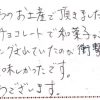 のお土産で頂きました
チョコレートで和菓子が
ングされていたのが衝撃
味しかったです。
うございます。